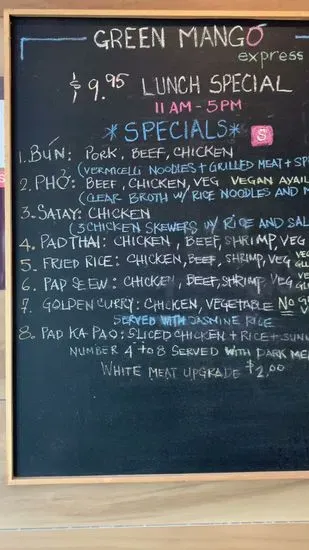 GREEN MANGO
express
$9.95 LUNCH SPECIAL
11 AM - 5PM
*SPECIALS* S
1. BÚN: PORK, BEEF, CHICKEN
(VERMICELLI NOODLES + GRILLED MEAT + SP
2. PHỞ: BEEF, CHICKEN, VEG VEGAN AVAI
(CLEAR BROTH W/ RICE NOODLES AND M
3. SATAY: CHICKEN
(3 CHICKEN SKEWERS W/ RICE AND SAL
4. PAD THAI: CHICKEN, BEEF, SHRIMP, VEG
5. FRIED RICE: CHICKEN, BEEF, SHRIMP, VEG VE GL
6. PAD SEEW: CHICKEN BEEF, SHRIMP, VEG VE GLU
7. GOLDEN CURRY: CHICKEN, VEGETABLE NO
SERVED WITH JASMINE RICE
8. PAD KA-PAO: SLICED CHICKEN + RICE + SUNN
NUMBER 4 to 8 SERVED WITH DARK MEA
WHITE MEAT UPGRADE $2.00